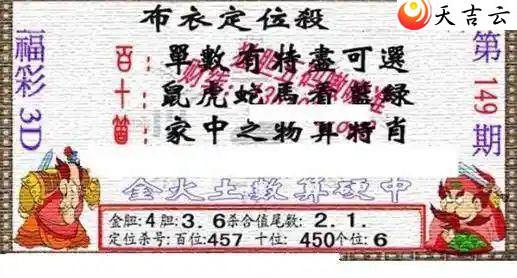 天吉云
布衣定位殺
福彩3D
第149期
百：單數有特盡可選
十：鼠虎蛇馬看藍綠
個：家中之物算特肖
金火土數算硬中
金胆:4胆:3.6杀合值尾数:2.1.
定位杀号:百位:457 十位:450个位:6